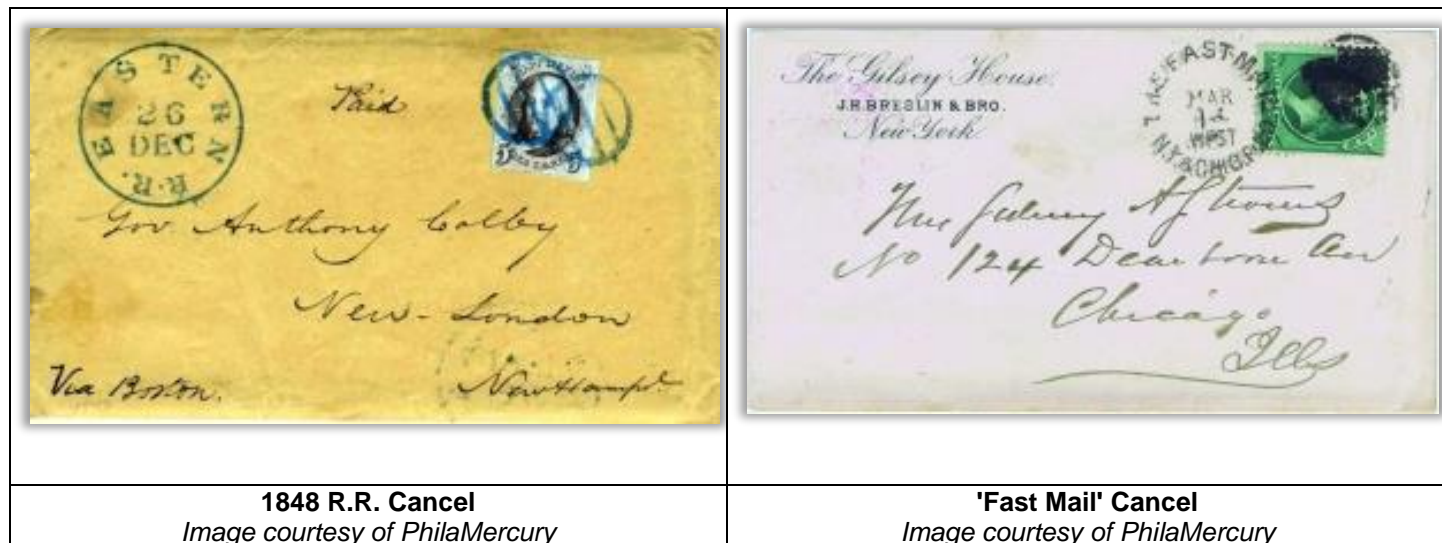 EASTERN R.R.
26
DEC
Paid
Gov Anthony Colby
New-London
New Hampr
Via Boston.
The Gilsey House.
J.H. BRESLIN & BRO.
New York
FAST MAIL
MAR
WEST
N.Y. & CHI
No 124 Dearborne Av
Chicago
Ills
1848 R.R. Cancel
Image courtesy of PhilaMercury
'Fast Mail' Cancel
Image courtesy of PhilaMercury